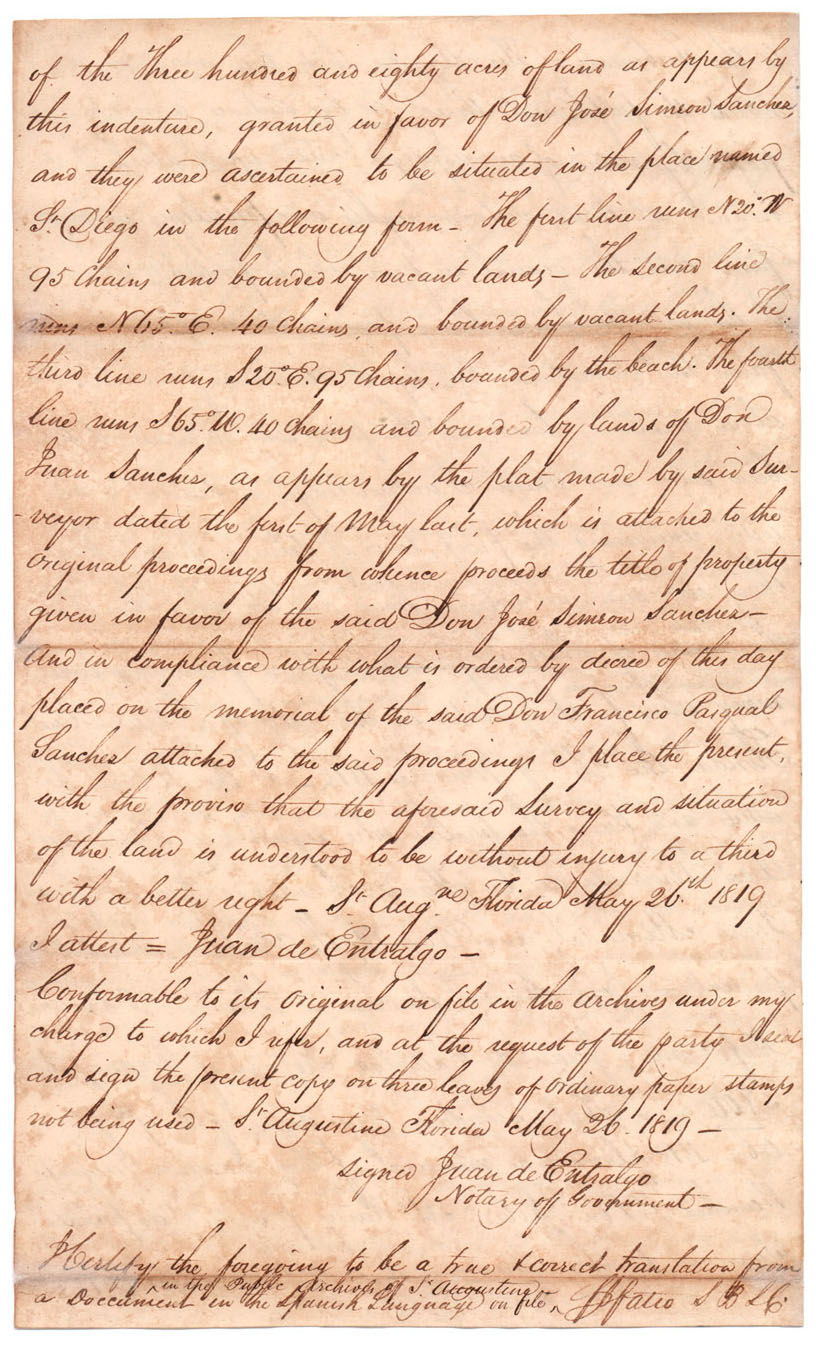 of the Three hundred and eighty acres of land as appears by
this indenture, granted in favor of Don José Simeon Sanchez,
and they were ascertained to be situated in the place named
St. Diego in the following form - The first line runs N 20° W
95 Chains and bounded by vacant lands - The second line
runs N 65° E. 40 Chains and bounded by vacant lands. The
third line runs S 20° E. 95 Chains, bounded by the beach. The fourth
line runs S 65° W. 40 Chains and bounded by lands of Don
Juan Sanchez, as appears by the plat made by said Sur-
-veyor dated the first of May last, which is attached to the
original proceedings from whence proceeds the title of property
given in favor of the said Don José Simeon Sanchez -
And in compliance with what is ordered by decree of this day
placed on the memorial of the said Don Francisco Pasqual
Sanchez attached to the said proceedings I place the present,
with the proviso that the aforesaid Survey and situation
of the land is understood to be without injury to a third
with a better right - St Augne Florida May 26th. 1819
I attest = Juan de Entralgo -
Conformable to its original on file in the Archives under my
charge to which I refer, and at the request of the party I seal
and sign the present copy on three leaves of ordinary paper stamps
not being used - St Augustine Florida May 26. 1819 -
signed Juan de Entralgo
Notary of Government -
I Certify the foregoing to be a true & correct translation from
in the Public Archives of St Augustine
a Doccument in the Spanish Language on file, Fatio S B L C.